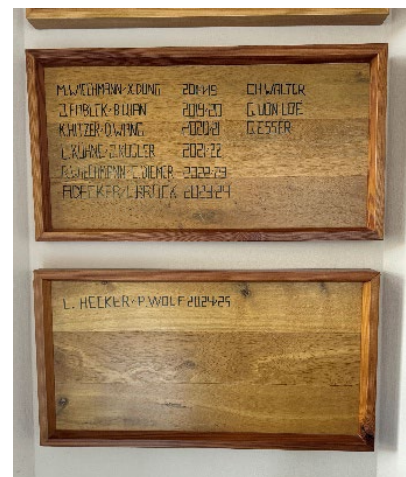 M.WIECHMANN-X.DUNG 2018-19 CH.WALTER
2019-20 G.VON LOE
K.HITZER-O.WANG 2020-21 G.ESSER
L.KÜHNE-J.KUGLER 2021-22
C.DIEMER 2022-23
A.DECKER-L.BROCK 2023-24
L. HECKER-P.WOLF 2024-25